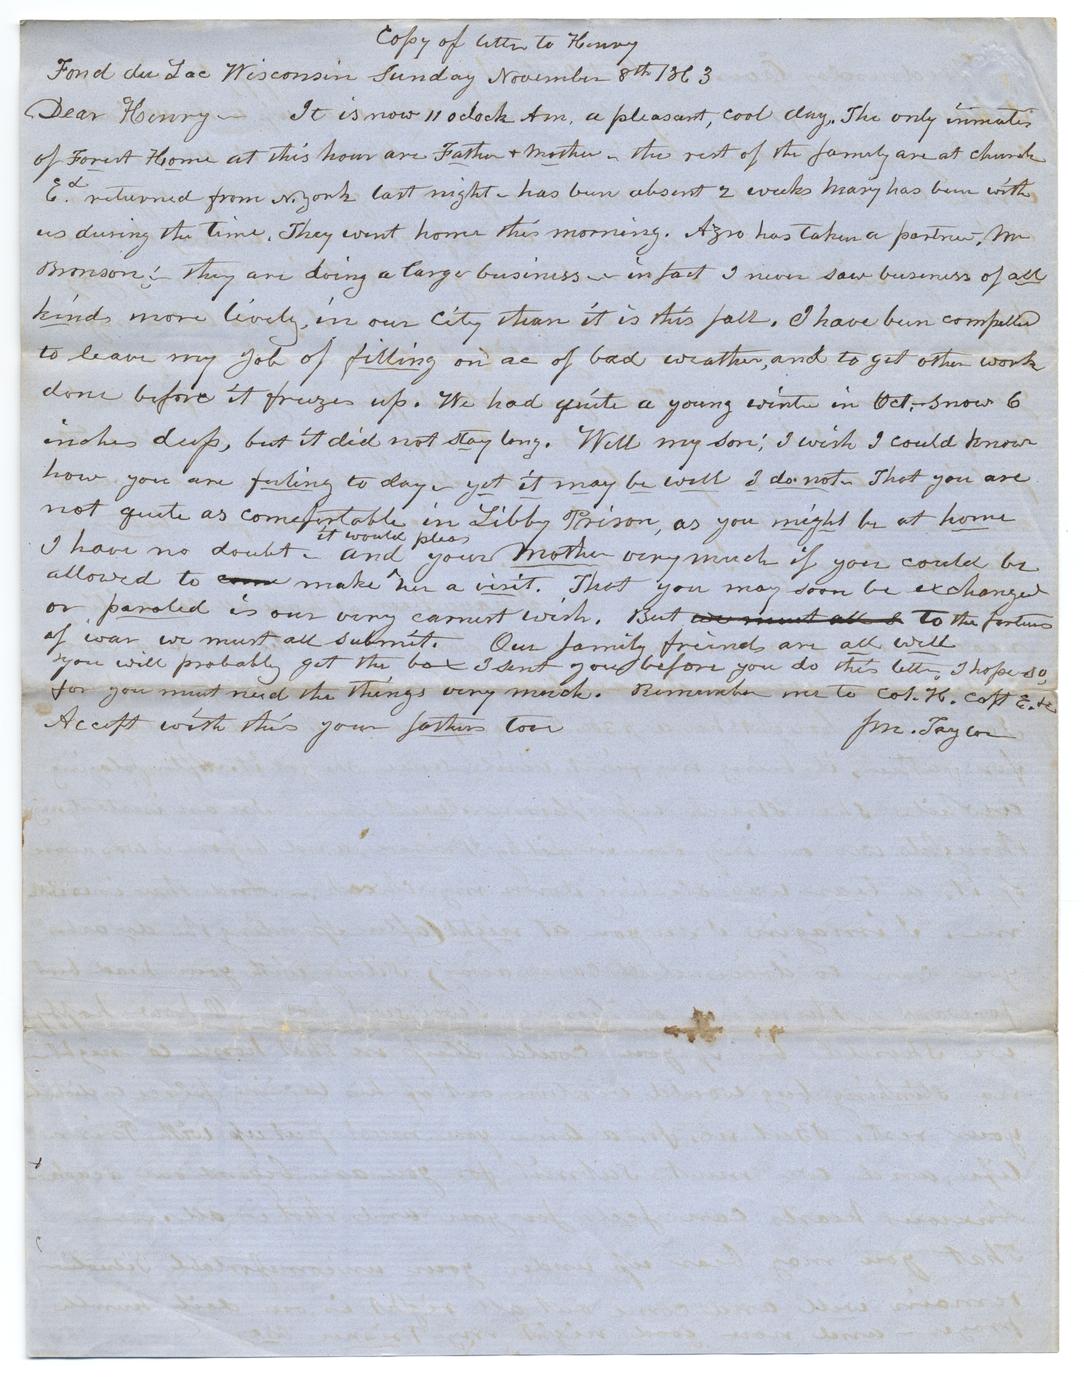 Copy of letter to Henry
Fond du Lac Wisconsin Sunday November 8th 1863
Dear Henry – It is now 11 oclock Am, a pleasant, cool day. The only inmates
of Forest Home at this hour are Father & Mother – the rest of the family are at church
Ed. returned from N. York last night – has been absent 2 weeks Mary has been with
us during the time. They went home this morning. Azro has taken a partner, Mr
Bronson – they are doing a large business – in fact I never saw business of all
kinds more lively, in our City than it is this fall. I have been compelled
to leave my job of filling on ac of bad weather, and to get other work
done before it freezes up. We had quite a young winter in Oct. – snow 6
inches deep, but it did not stay long. Well my son, I wish I could know
how you are feeling to day – yet it may be well I do not – That you are
not quite as comefortable in Libby Prison, as you might be at home
I have no doubt – and it would pleas your Mother very much if you could be
allowed to come make her a visit. That you may soon be exchanged
or paroled is our very earnest wish. But we must all To the fortunes
of war we must all submit. Our family friends are all well
you will probably get the box I sent you before you do this letter, I hope so,
for you must need the things very much. Remember me to Col. H. Capt E. &c
Accept with this your fathers love Jm. Taylor